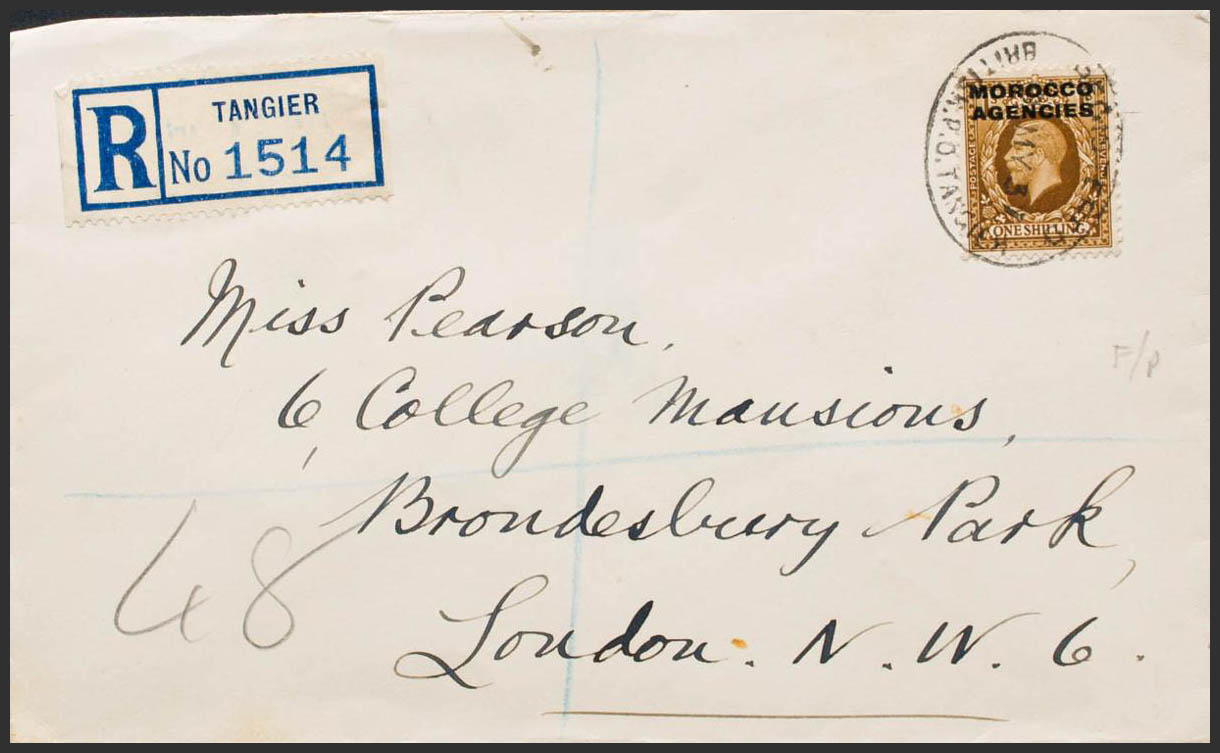 R
TANGIER
No 1514
MOROCCO
AGENCIES
POSTAGE
ONE SHILLING
BRITISH.P.O.TANGIER
Miss Pearson,
6, College Mansions,
Brondesbury Park,
London. N. W. 6.
48
F/P